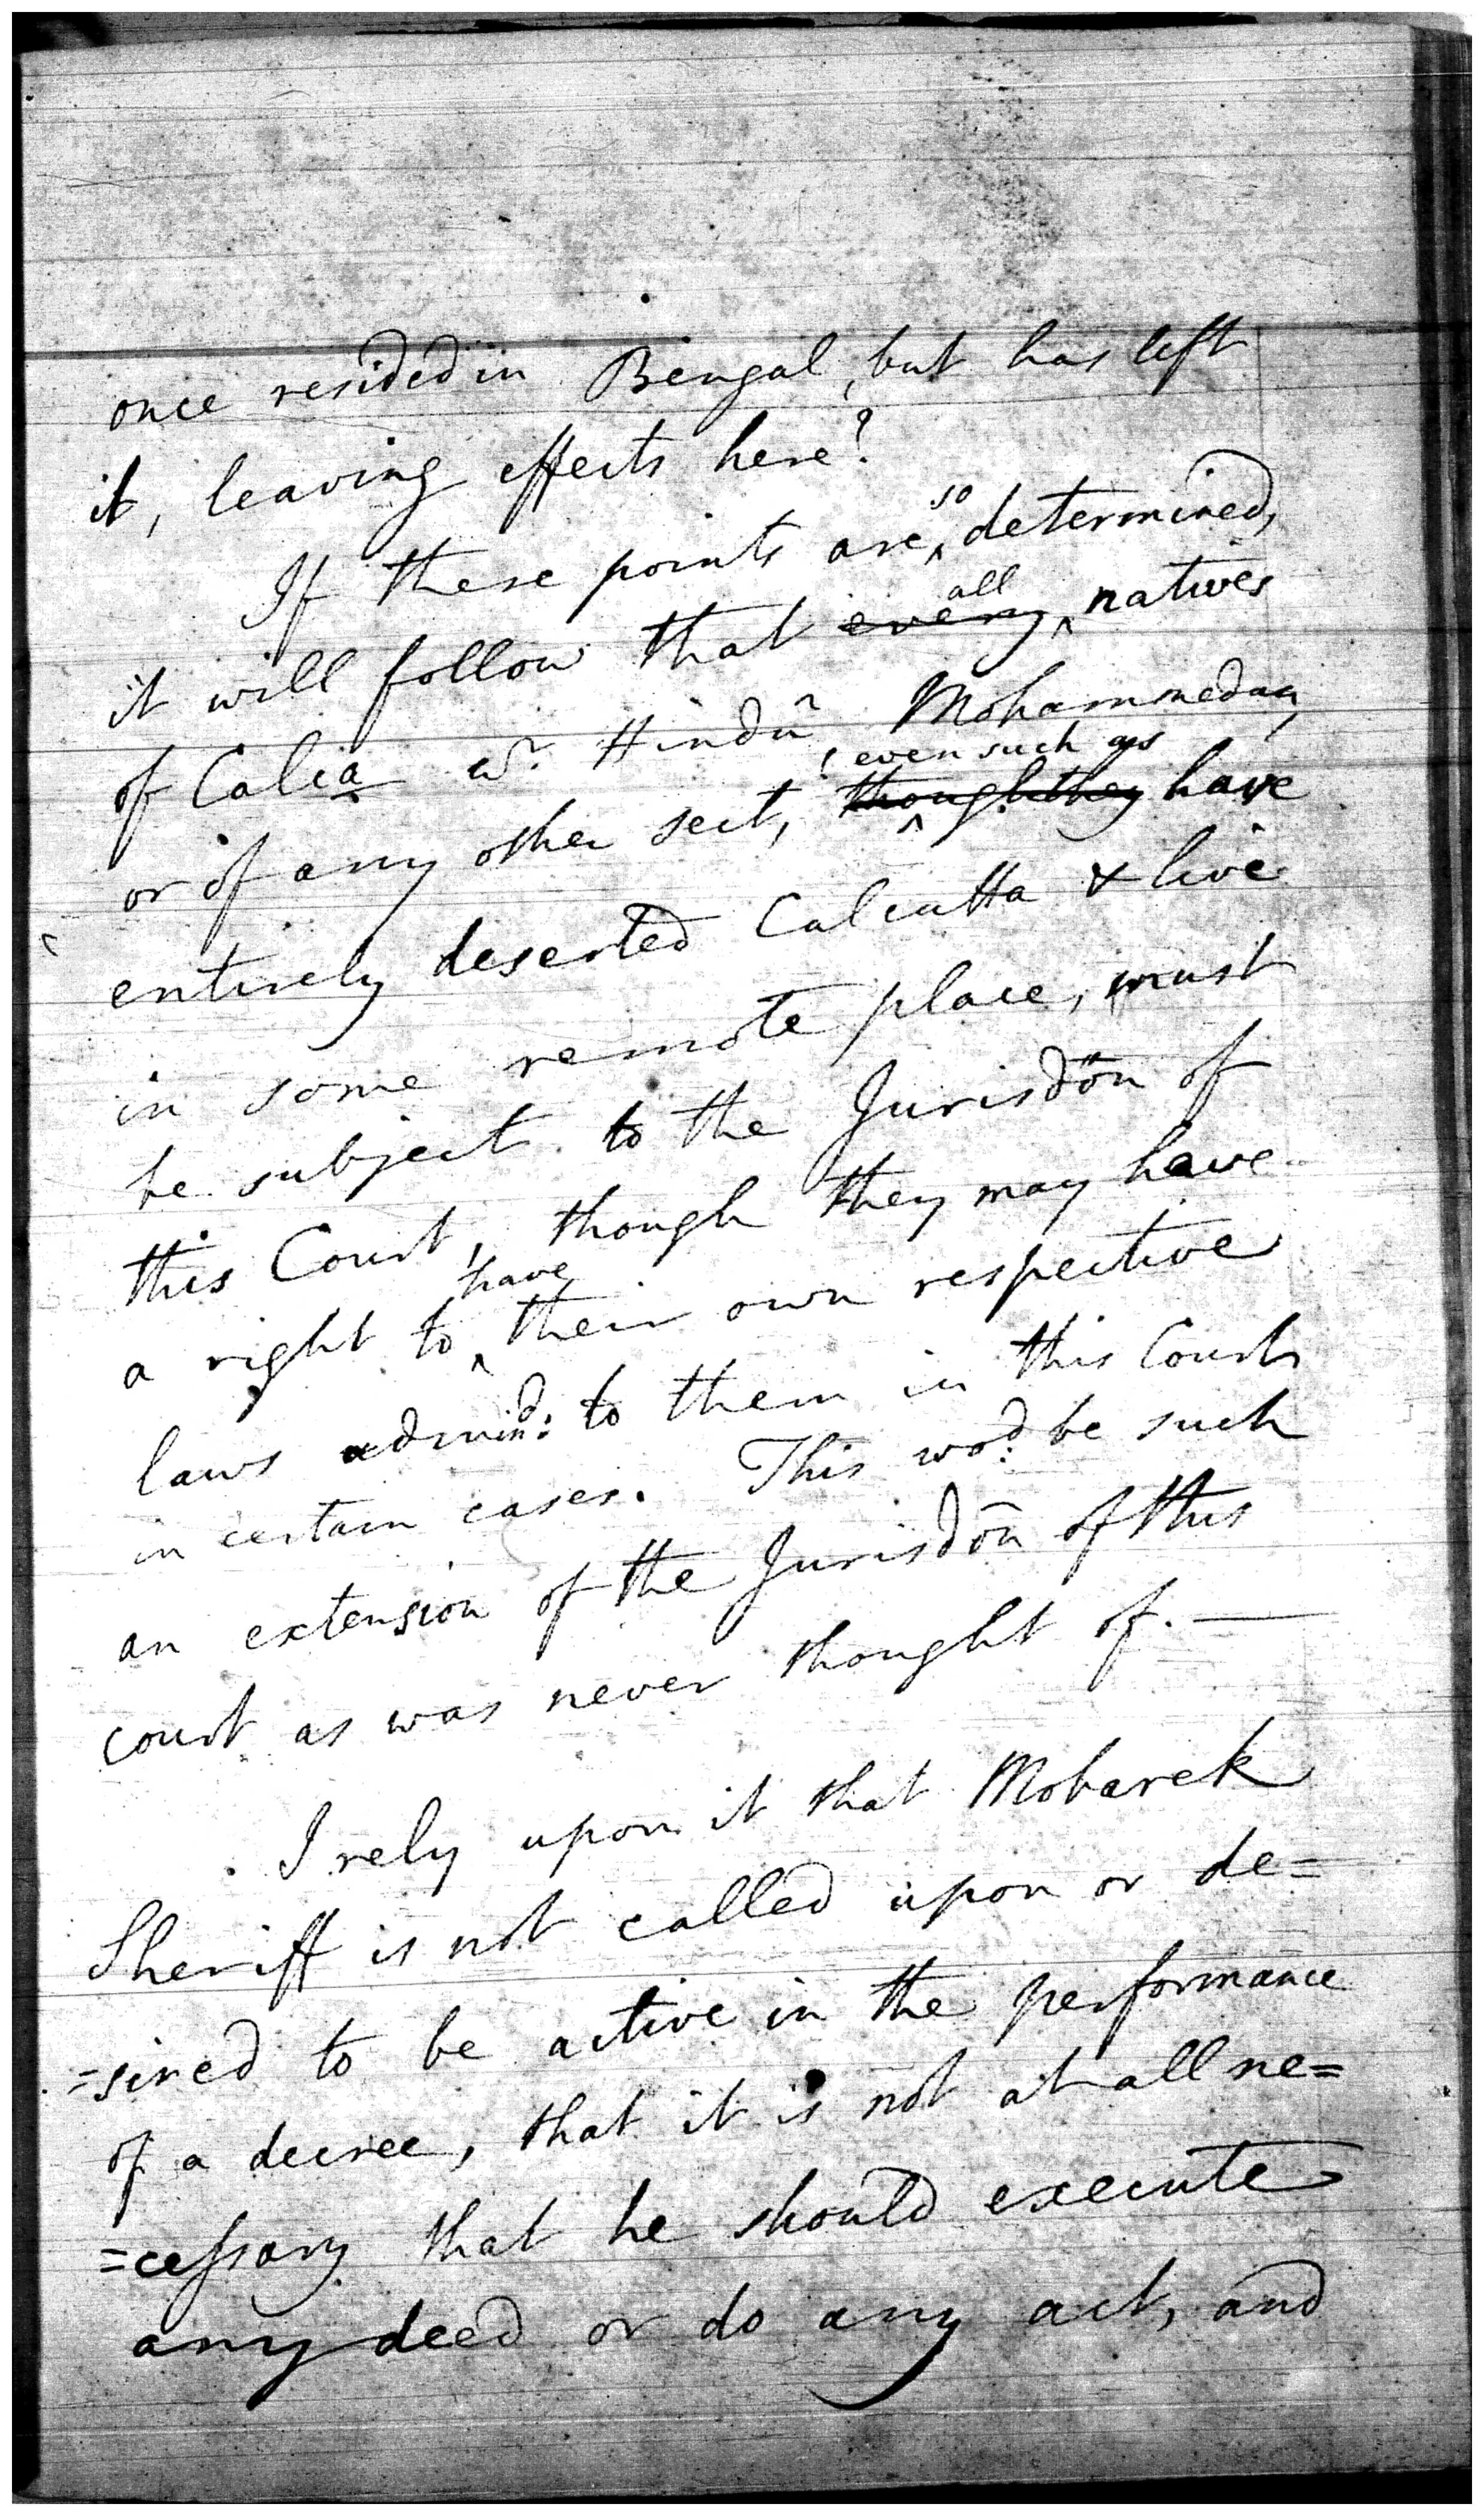 once resided in Bengal, but has left
it, leaving effects here?
If these points are so determined,
it will follow that every all natives
of Calca wr. Hindu Mohammedan,
or of any other sect, though they even such as have
entirely deserted Calcutta & live
in some remote place, must
be subject to the Jurisdōn of
this Court, though they may have
a right to have their own respective
laws admind: to them in this Court
in certain cases. This wod. be such
an extension of the Jurisdōn of this
court as was never thought of. —
I rely upon it that Mobarek
Sheriff is not called upon or de=
=sired to be active in the performance
of a decree, that it is not at all ne=
=cessary that he should execute
any deed or do any act, and